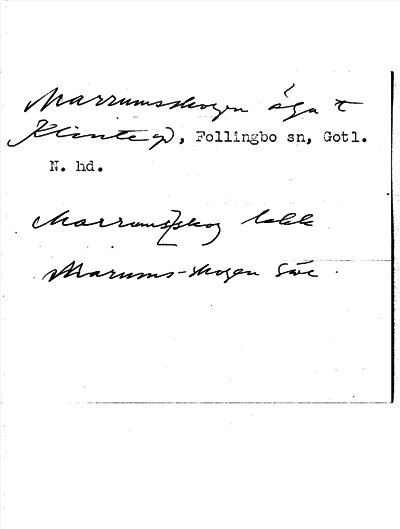 Marrumsskogen äga t
Klinte gd, Follingbo sn, Gotl.
N. hd.
Marrums[skog
Marums-skogen Säve